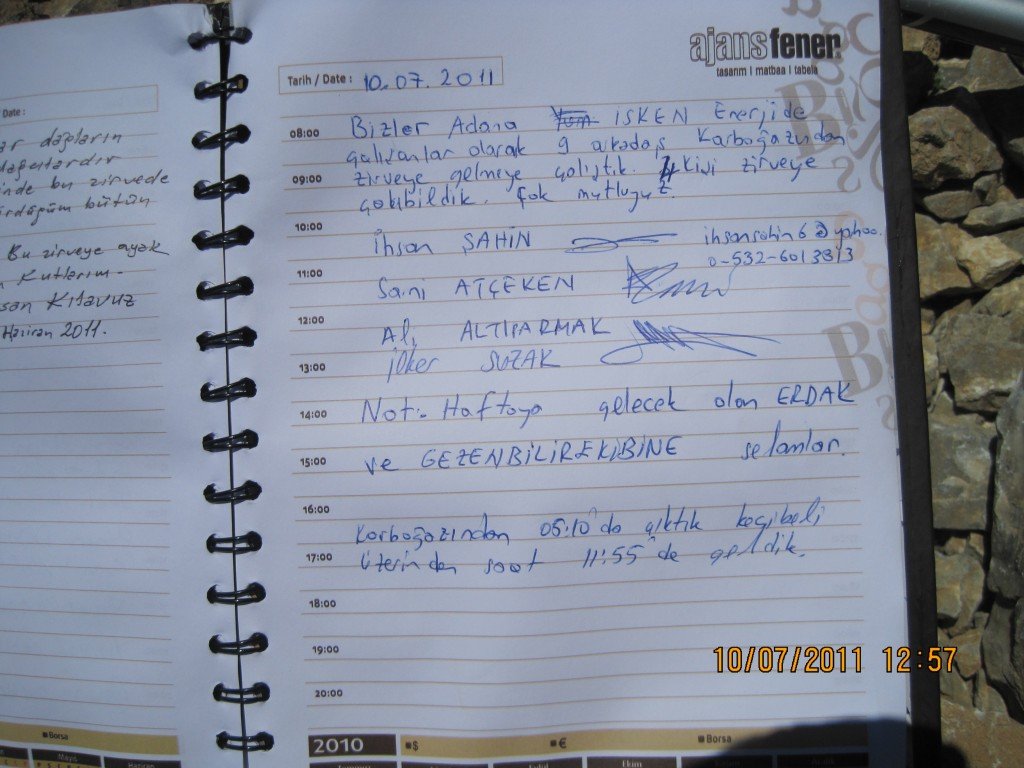 Date :
dağların
dağcılardır
bu zirvede
bütün
Bu zirveye ayak
Kutlarım.
Kılavuz
Haziran 2011.
Borsa
Mayıs
Haziran
ajansfener
tasarım | matbaa | tabela
Tarih / Date : 10.07.2011
08:00 Bizler Adana İSKEN Enerjide
çalışanlar olarak 9 arkadaş Karboğazından
09:00 zirveye gelmeye çalıştık. 4 kişi zirveye
çıkabildik. Çok mutluyuz.
10:00 İhsan ŞAHİN ihsansahin6@yahoo.
0-532-6013813
11:00 Sami ATÇEKEN
12:00 Ali ALTIPARMAK
13:00 İlker SUZAK
14:00 Not:- Haftaya gelecek olan ERDAK
15:00 ve GEZENBİLİR EKİBİNE selamlar.
16:00 Karboğazından 05:10'da çıktık koçibeli
17:00 üzerinden saat 11:55'de geldik.
18:00
19:00
20:00
2010 $ € Borsa
Temmuz Eylül Ekim Aralık
10/07/2011 12:57